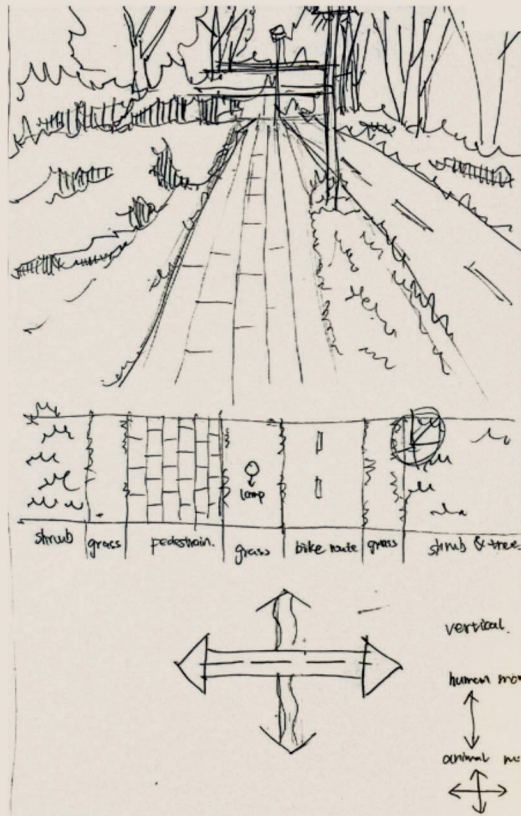 lamp
shrub grass pedestrain. grass bike route grass shrub & tree
vertical.
human mo
animal m